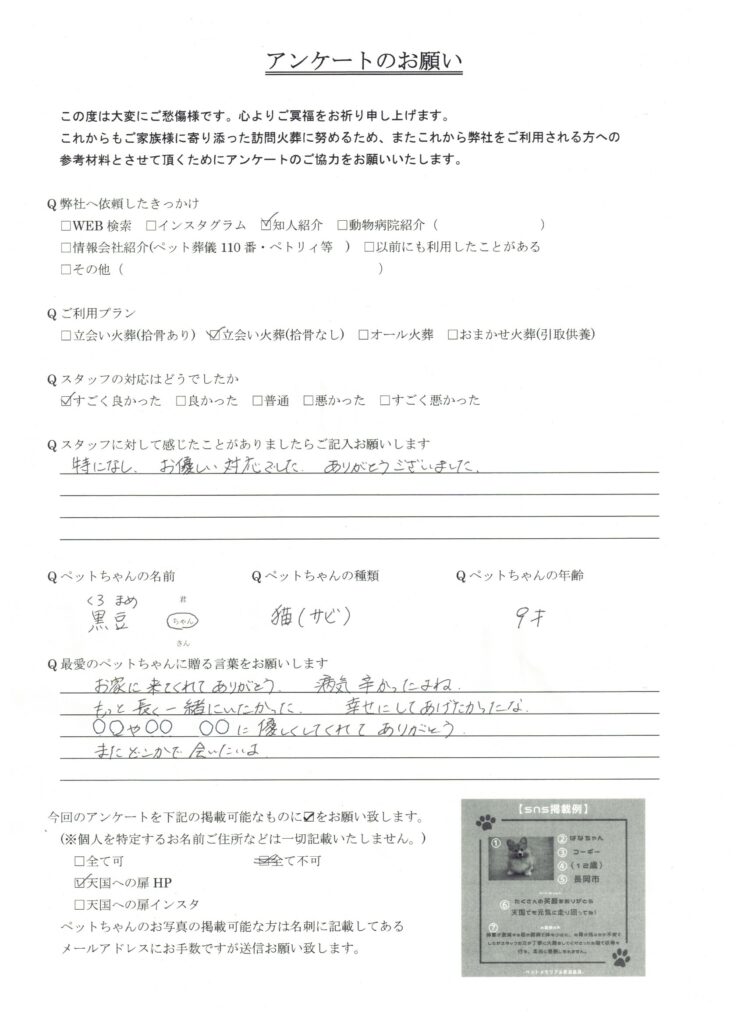 アンケートのお願い
この度は大変にご愁傷様です。心よりご冥福をお祈り申し上げます。
これからもご家族様に寄り添った訪問火葬に努めるため、またこれから弊社をご利用される方への
参考材料とさせて頂くためにアンケートのご協力をお願いいたします。
Q 弊社へ依頼したきっかけ
□WEB 検索 □インスタグラム ☑知人紹介 □動物病院紹介（ ）
□情報会社紹介(ペット葬儀 110 番・ペトリィ等 ) □以前にも利用したことがある
□その他（ ）
Q ご利用プラン
□立会い火葬(拾骨あり) ☑立会い火葬(拾骨なし) □オール火葬 □おまかせ火葬(引取供養)
Q スタッフの対応はどうでしたか
☑すごく良かった □良かった □普通 □悪かった □すごく悪かった
Q スタッフに対して感じたことがありましたらご記入お願いします
特になし。 お優しい対応でした。 ありがとうございました。
Q ペットちゃんの名前 Q ペットちゃんの種類 Q ペットちゃんの年齢
くろ まめ 君
黒豆 ちゃん 猫(サビ) 9才
さん
Q 最愛のペットちゃんに贈る言葉をお願いします
お家に来てくれてありがとう。 病気 辛かったよね。
もっと長く一緒にいたかった。 幸せにしてあげたかったな。
○○や○○ ○○に優しくしてくれてありがとう。
またどこかで会いたいよ
今回のアンケートを下記の掲載可能なものに☑をお願い致します。
(※個人を特定するお名前ご住所などは一切記載いたしません。)
□全て可 全て不可
☑天国への扉 HP
□天国への扉インスタ
ペットちゃんのお写真の掲載可能な方は名刺に記載してある
メールアドレスにお手数ですが送信お願い致します。
【sns掲載例】
① ② はなちゃん
③ コーギー
④ (12歳)
⑤ 長岡市
⑥ たくさんの笑顔をありがとう
天国でも元気に走り回ってね!
⑦